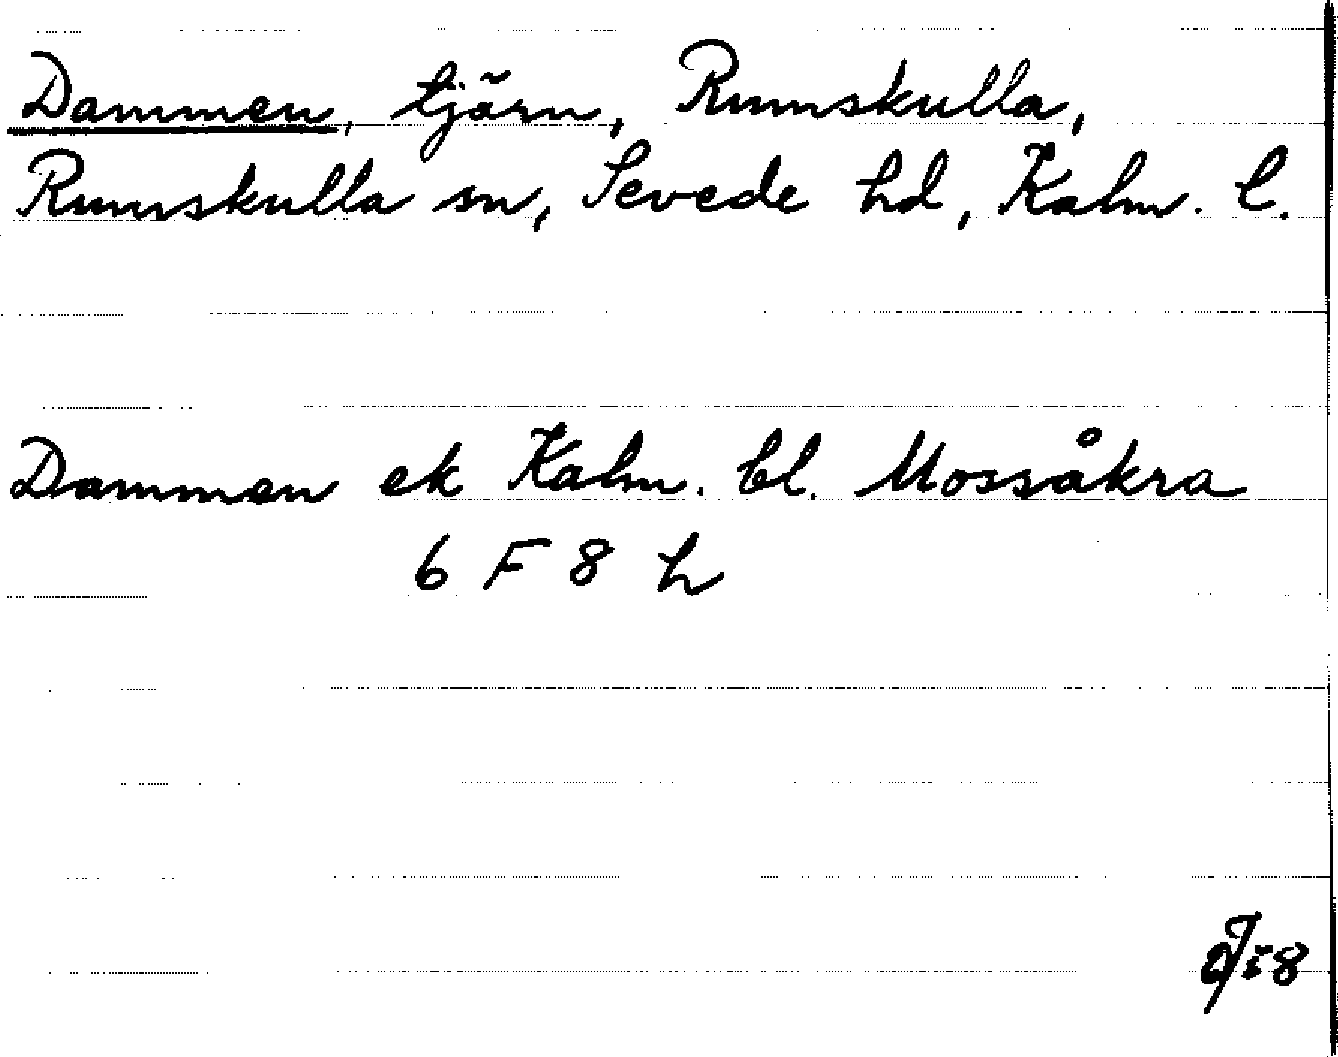 Dammen, tjärn, Rumskulla,
Rumskulla sn, Sevede hd, Kalm. l.
Dammen ek Kalm. bl. Mossåkra
6 F 8 h